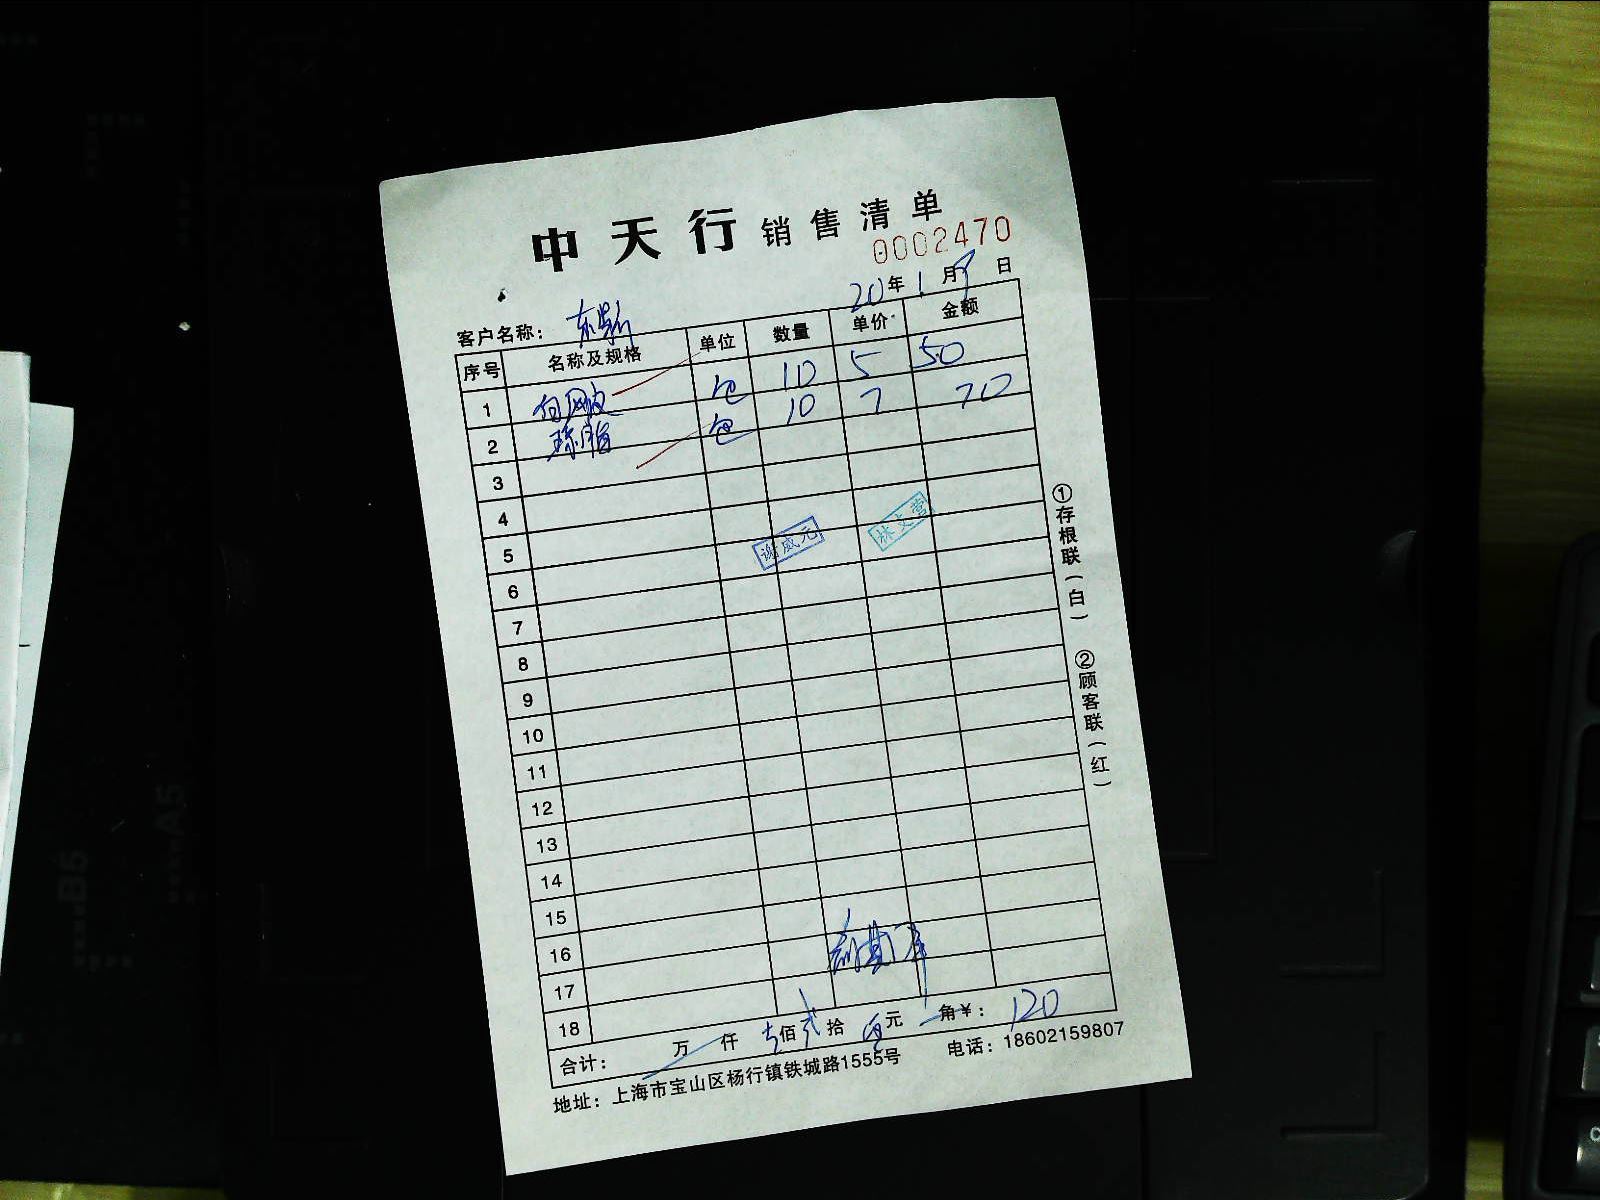 中天行销售清单
0002470
20年1月9日
客户名称：
序号 名称及规格 单位 数量 单价 金额
1 包 10 5 50
2 包 10 7 70
3
4
5
6
7
8
9
10
11
12
13
14
15
16
17
18
谢威元
林文营
合计： 万 仟 壹佰贰拾零元 角¥：120
地址：上海市宝山区杨行镇铁城路1555号 电话：18602159807
①存根联（白） ②顾客联（红）
B5
A5